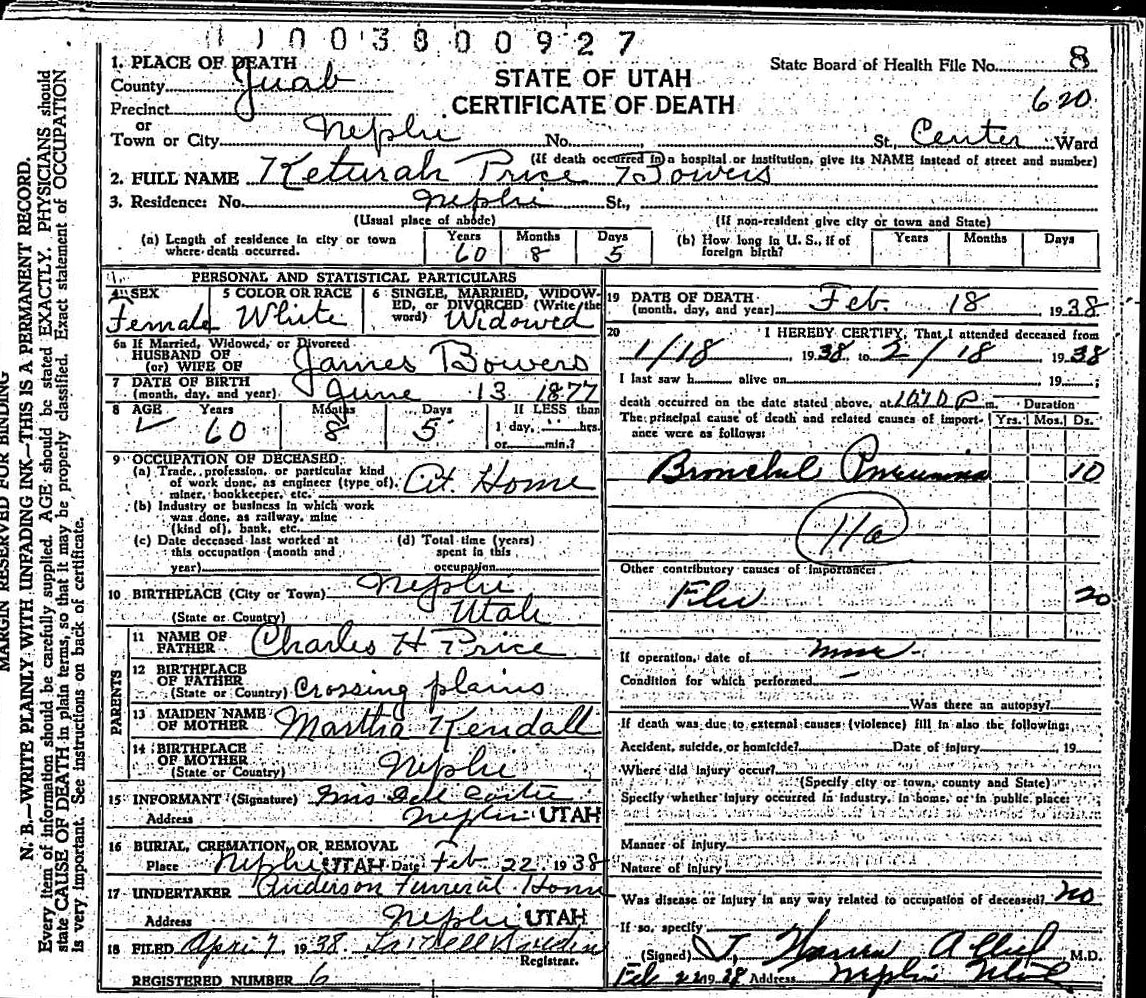 1 1 0 0 3 8 0 0 9 2 7
STATE OF UTAH
CERTIFICATE OF DEATH
State Board of Health File No. 8
620
1. PLACE OF DEATH
County Juab
Precinct
or
Town or City Nephi No. St., Center Ward
(If death occurred in a hospital or institution, give its NAME instead of street and number)
2. FULL NAME Keturah Price Bowers
3. Residence: No. Nephi St.,
(Usual place of abode) (If non-resident give city or town and State)
(a) Length of residence in city or town where death occurred. Years 60 Months 8 Days 5
(b) How long in U. S., if of foreign birth? Years Months Days
PERSONAL AND STATISTICAL PARTICULARS
4 SEX Female
5 COLOR OR RACE White
6 SINGLE, MARRIED, WIDOWED, or DIVORCED (Write the word) Widowed
6a If Married, Widowed, or Divorced
HUSBAND OF
(or) WIFE OF James Bowers
7 DATE OF BIRTH
(month, day, and year) June 13 1877
8 AGE Years 60 Months 8 Days 5 If LESS than 1 day, hrs. or min.?
9 OCCUPATION OF DECEASED:
(a) Trade, profession, or particular kind of work done, as engineer (type of), miner, bookkeeper, etc. At Home
(b) Industry or business in which work was done, as railway, mine (kind of), bank, etc.
(c) Date deceased last worked at this occupation (month and year)
(d) Total time (years) spent in this occupation
10 BIRTHPLACE (City or Town) Nephi
(State or Country) Utah
PARENTS
11 NAME OF FATHER Charles H Price
12 BIRTHPLACE OF FATHER
(State or Country) Crossing plains
13 MAIDEN NAME OF MOTHER Martha Kendall
14 BIRTHPLACE OF MOTHER
(State or Country) Nephi
15 INFORMANT (Signature) Mrs
Address Nephi UTAH
16 BURIAL, CREMATION, OR REMOVAL
Place Nephi UTAH Date Feb 22 1938
17 UNDERTAKER Anderson Funeral Home
Address Nephi UTAH
18 FILED April 7 1938
Registrar.
REGISTERED NUMBER 6
19 DATE OF DEATH
(month, day, and year) Feb. 18 1938
20 I HEREBY CERTIFY, That I attended deceased from
1/18 1938 to 2/18 1938
I last saw h alive on 19 ;
death occurred on the date stated above, at m. Duration
The principal cause of death and related causes of importance were as follows: Yrs. Mos. Ds.
Bronchial Pneumonia 10
Other contributory causes of importance:
Flu 20
If operation, date of none
Condition for which performed –
Was there an autopsy?
If death was due to external causes (violence) fill in also the following:
Accident, suicide, or homicide? Date of injury 19
Where did injury occur?
(Specify city or town, county and State)
Specify whether injury occurred in industry, in home, or in public place:
Manner of injury
Nature of injury
Was disease or injury in any way related to occupation of deceased? no
If so, specify
(Signed) M.D.
Feb 22 1938 Address Nephi Utah
MARGIN RESERVED FOR BINDING
N. B.—WRITE PLAINLY WITH UNFADING INK—THIS IS A PERMANENT RECORD.
Every item of information should be carefully supplied. AGE should be stated EXACTLY. PHYSICIANS should
state CAUSE OF DEATH in plain terms, so that it may be properly classified. Exact statement of OCCUPATION
is very important. See instructions on back of certificate.